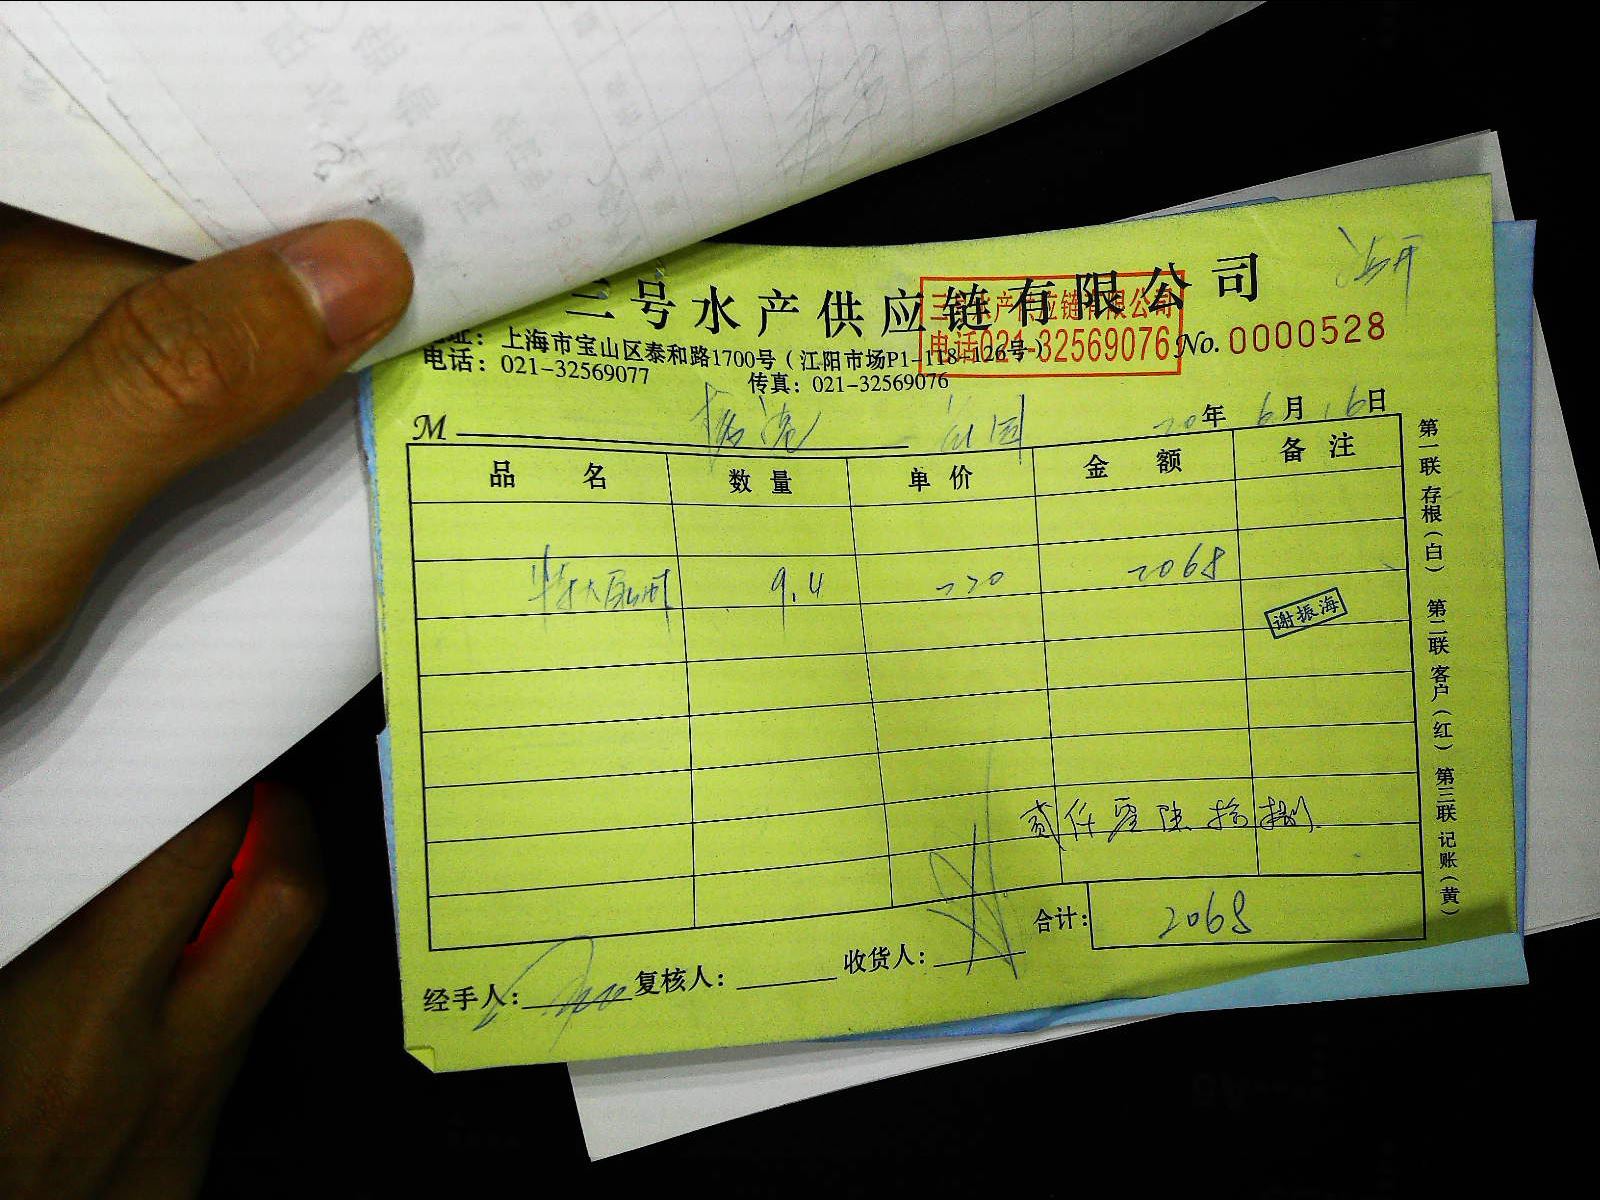 三号水产供应链有限公司
三号水产供应链有限公司
电话021-32569076
址：上海市宝山区泰和路1700号（江阳市场P1-118-126号）
电话：021-32569077 传真：021-32569076
No. 0000528
M 20年6月16日
品名 数量 单价 金额 备注
特大 9.4 220 2068
谢振海
贰仟零陆拾捌
合计： 2068
经手人： 复核人： 收货人：
第一联 存根（白） 第二联 客户（红） 第三联 记账（黄）